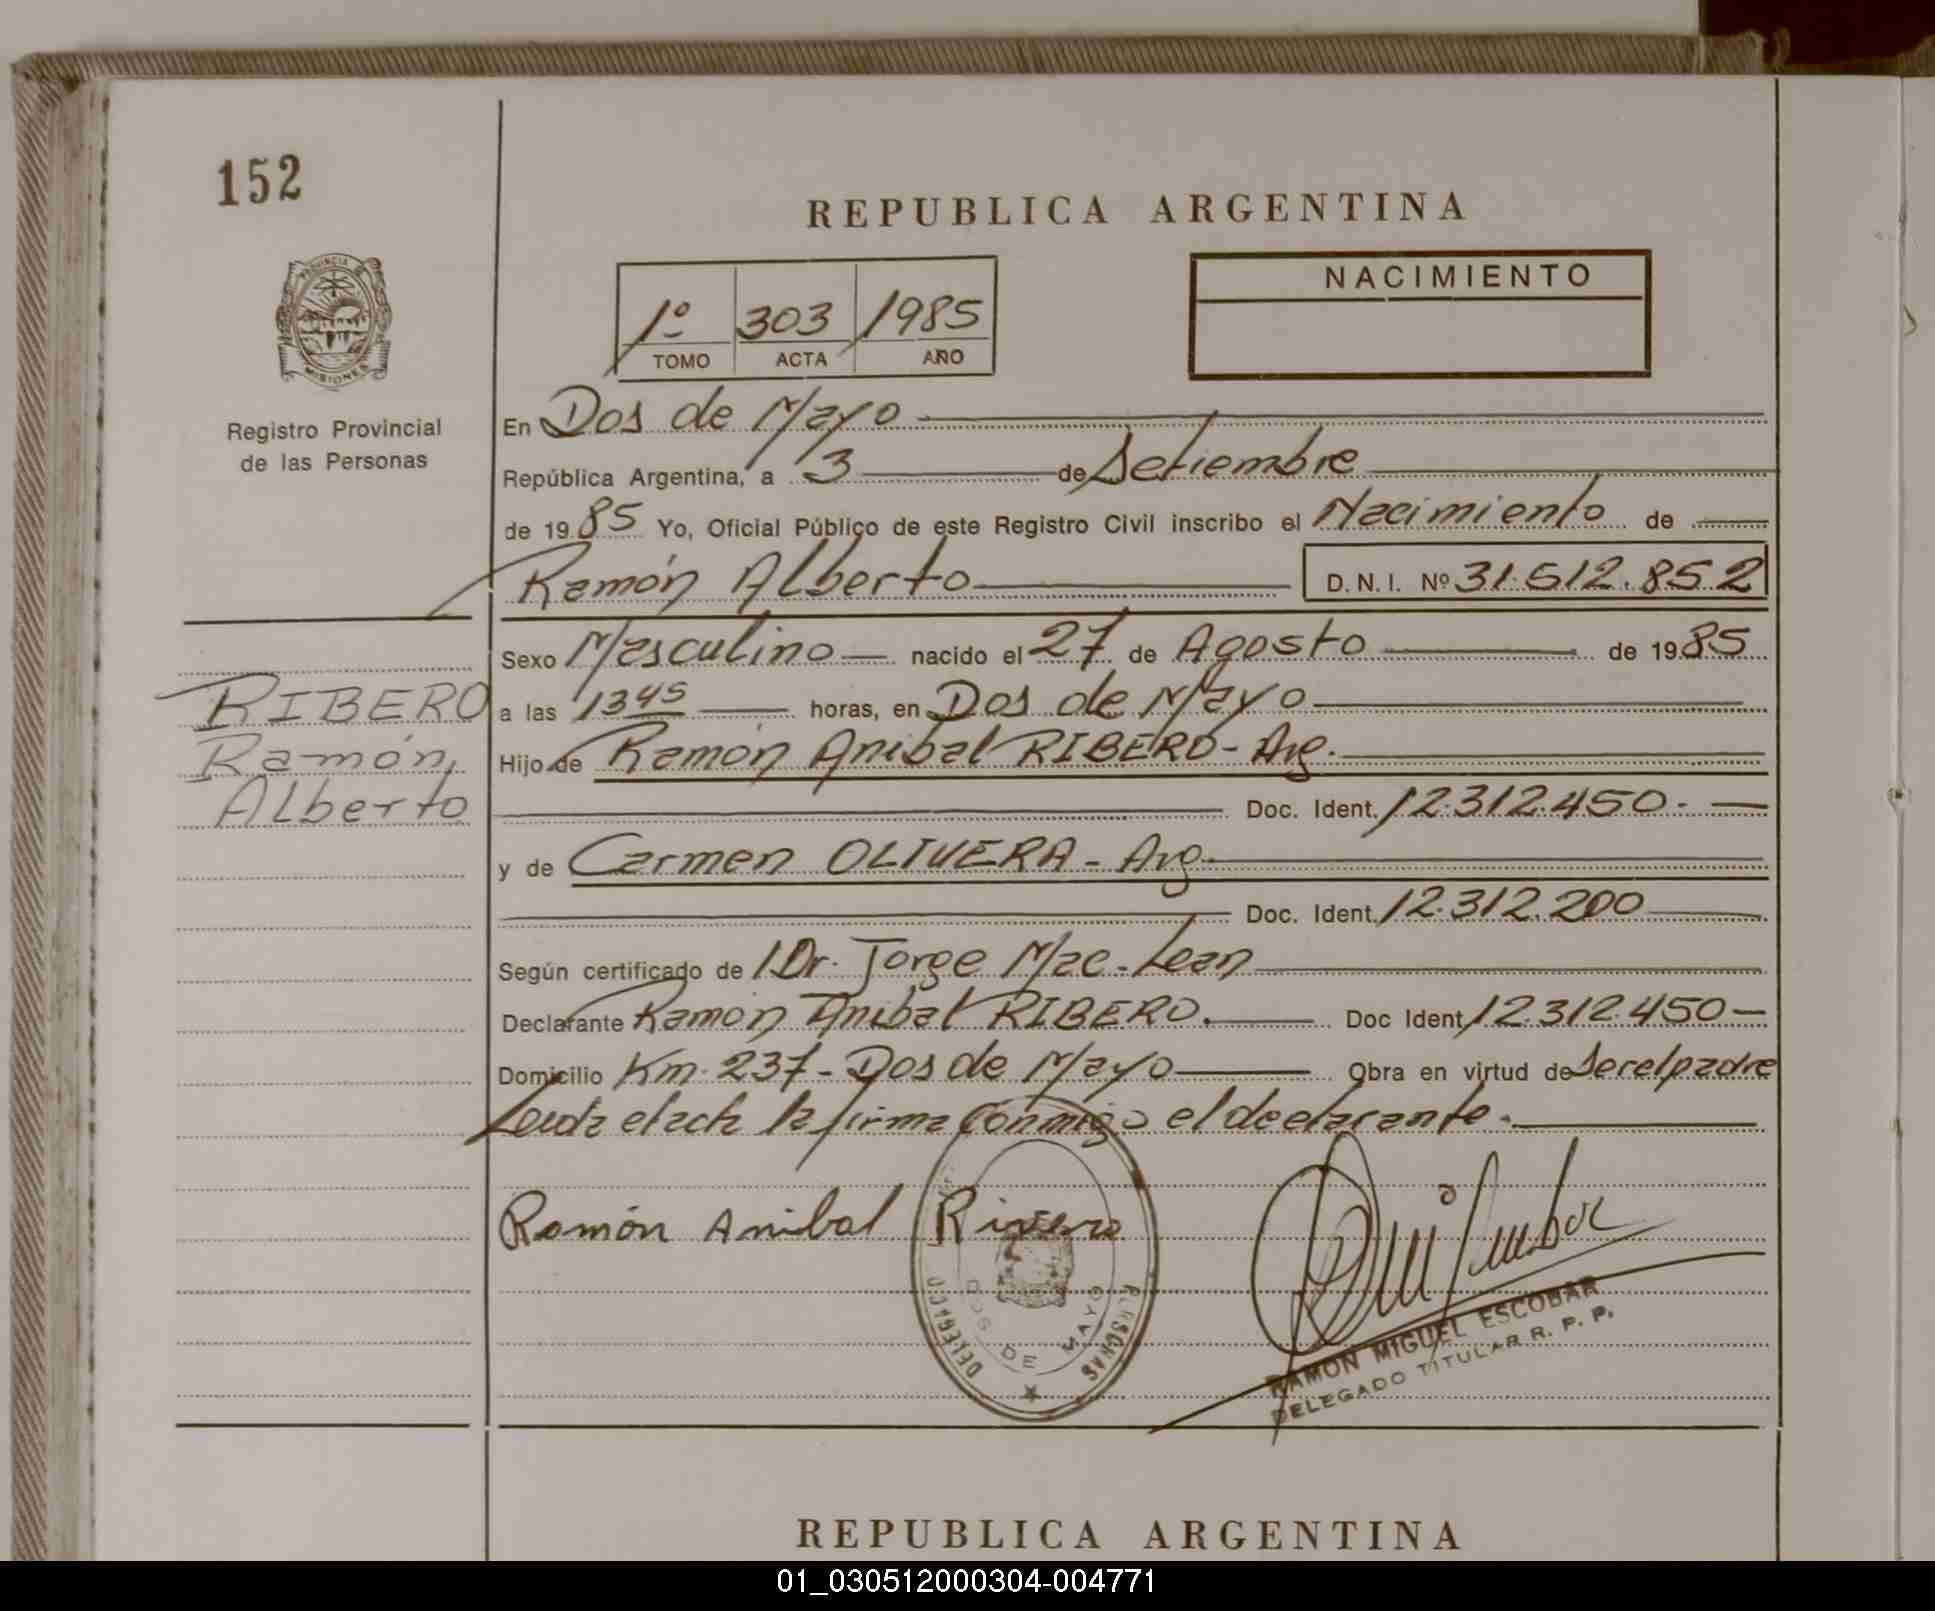 152
REPUBLICA ARGENTINA
PROVINCIA DE
MISIONES
Registro Provincial
de las Personas
1º 303 1985
TOMO ACTA AÑO
NACIMIENTO
En Dos de Mayo
República Argentina, a 3 de Setiembre
de 1985 Yo, Oficial Público de este Registro Civil inscribo el Nacimiento de
Ramón Alberto D.N.I. Nº 31.512.852
Sexo Masculino nacido el 27 de Agosto de 1985
RIBERO
Ramón
Alberto
a las 1345 horas, en Dos de Mayo
Hijo de Ramón Anibal RIBERO - Arg.
Doc. Ident. 12.312.450.-
y de Carmen OLIVERA - Arg.
Doc. Ident. 12.312.200
Según certificado de Dr. Jorge Mac-Lean
Declarante Ramón Anibal RIBERO. Doc Ident 12.312.450-
Domicilio Km. 237 - Dos de Mayo Obra en virtud de ser el padre
Leida el acta la firma conmigo el declarante.
Ramón Anibal Rivero
DOS DE MAYO
PERSONAS
RAMON MIGUEL ESCOBAR
DELEGADO TITULAR R. P. P.
REPUBLICA ARGENTINA
01_030512000304-004771